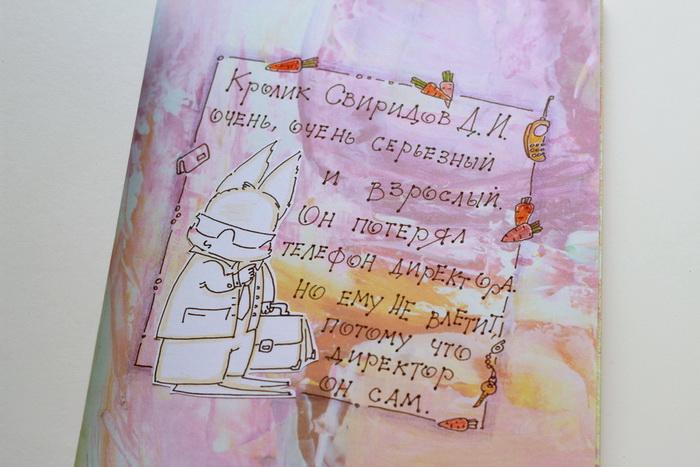 Кролик Свиридов Д. И.
очень, очень серьезный
и взрослый.
Он потерял
телефон директора.
Но ему не влетит,
потому что
директор
он сам.